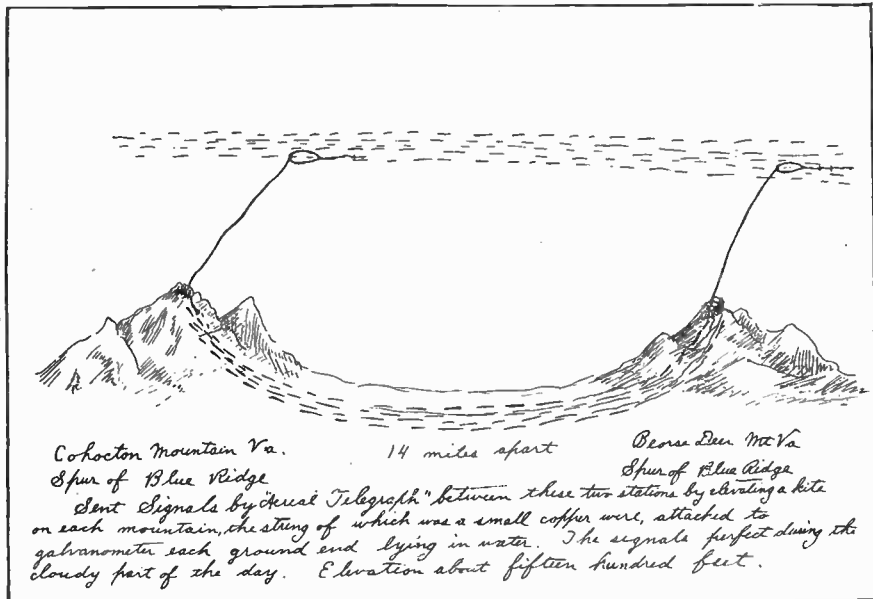 Cohocton Mountain Va.
14 miles apart
Beorse Deer Mt Va
Spur of Blue Ridge
Spur of Blue Ridge
Sent Signals by "Aerial Telegraph" between these two stations by elevating a kite
on each mountain, the string of which was a small copper wire, attached to
galvanometer each ground end lying in water. The signals perfect during the
cloudy part of the day. Elevation about fifteen hundred feet.